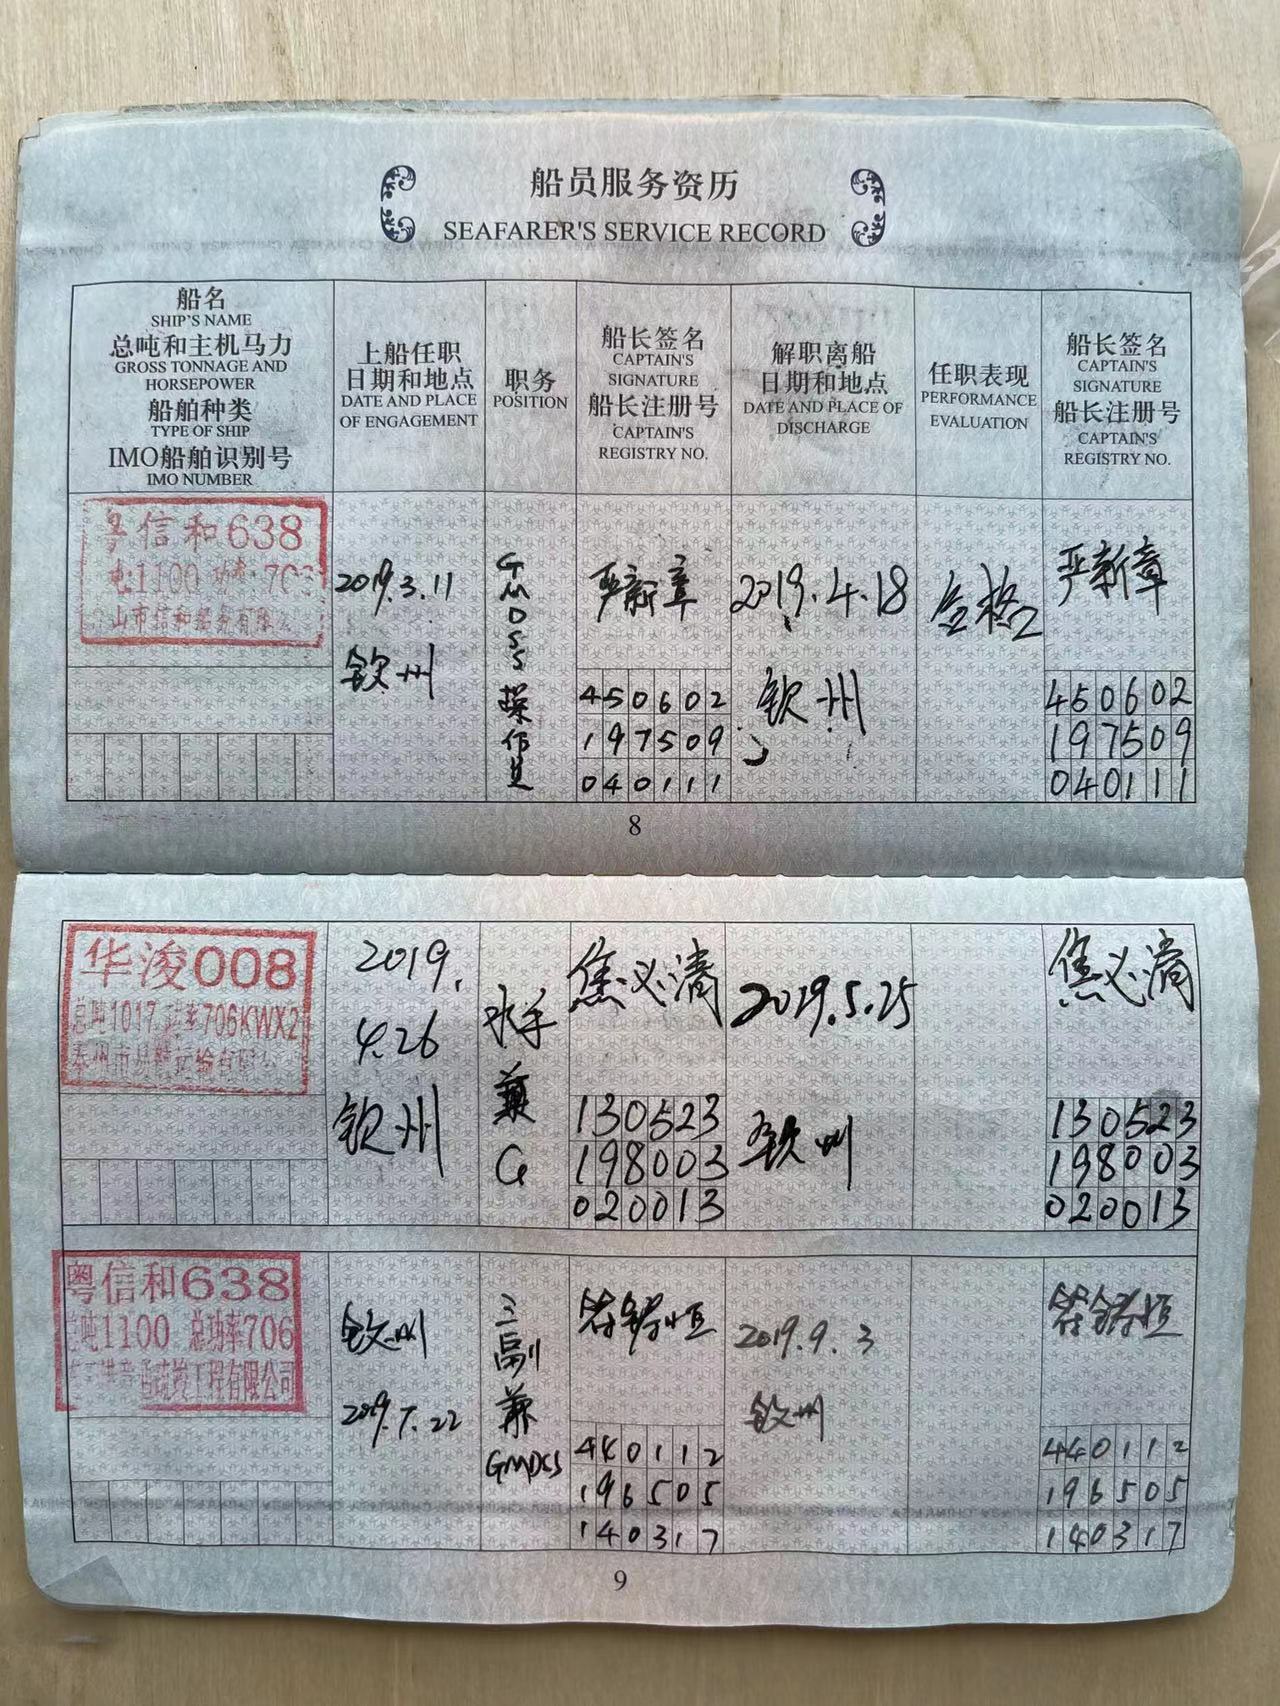 船员服务资历
SEAFARER'S SERVICE RECORD
船名
SHIP'S NAME
总吨和主机马力
GROSS TONNAGE AND
HORSEPOWER
船舶种类
TYPE OF SHIP
IMO船舶识别号
IMO NUMBER
上船任职
日期和地点
DATE AND PLACE
OF ENGAGEMENT
职务
POSITION
船长签名
CAPTAIN'S
SIGNATURE
船长注册号
CAPTAIN'S
REGISTRY NO.
解职离船
日期和地点
DATE AND PLACE OF
DISCHARGE
任职表现
PERFORMANCE
EVALUATION
船长签名
CAPTAIN'S
SIGNATURE
船长注册号
CAPTAIN'S
REGISTRY NO.
粤信和638
吨1100 功率
山市信和船务有限
2019.3.11
钦州
GMDSS操作员
严新章
450602
197509
040111
2019.4.18
钦州
合格
严新章
450602
197509
040111
8
华浚008
总吨1017 功率706KWX2
泰州市 运输有限
2019.
4.26
钦州
水手
兼
G
焦必清
130523
198003
020013
2019.5.25
钦州
焦必清
130523
198003
020013
粤信和638
吨1100 总功率706
疏浚工程有限公司
钦州
2019.7.22
三副
兼
GMDSS
符 恒
440112
196505
140317
2019.9.3
钦州
符 恒
440112
196505
140317
9